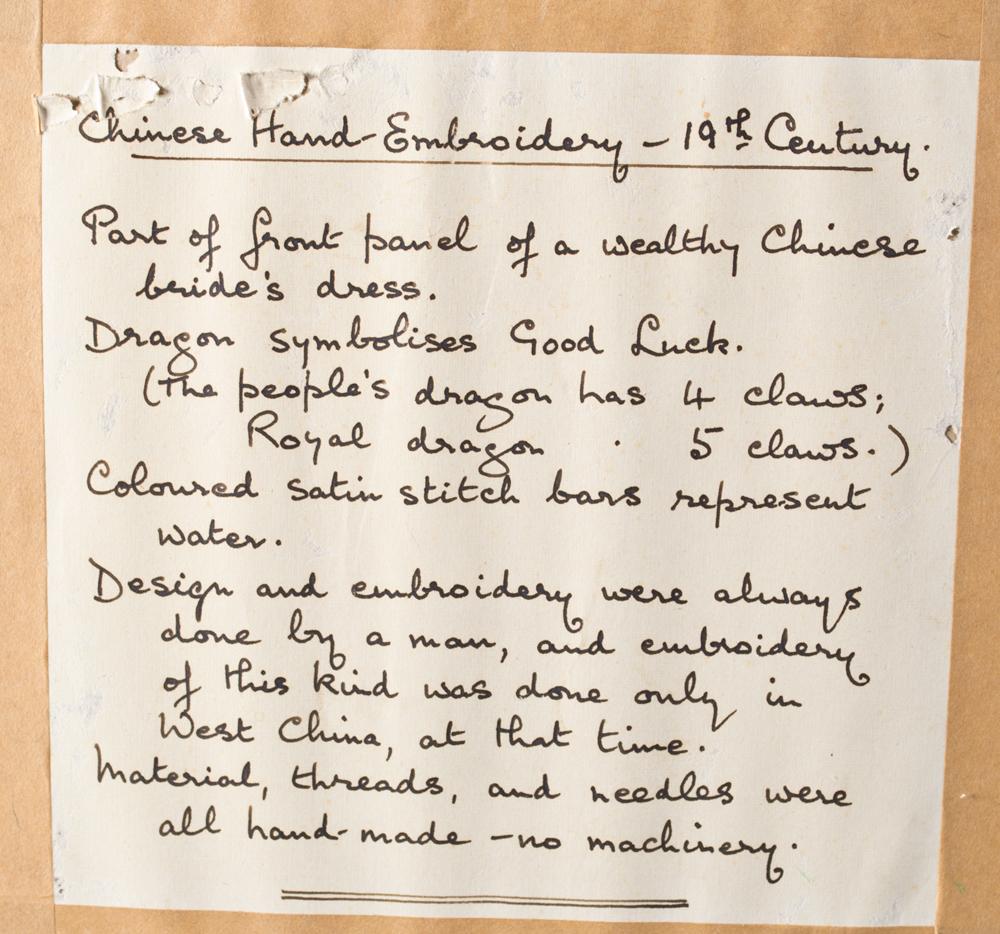 Chinese Hand-Embroidery – 19th Century.
Part of front panel of a wealthy Chinese
bride's dress.
Dragon symbolises Good Luck.
(The people's dragon has 4 claws;
Royal dragon · 5 claws.)
Coloured satin stitch bars represent
water.
Design and embroidery were always
done by a man, and embroidery
of this kind was done only in
West China, at that time.
Material, threads, and needles were
all hand-made – no machinery.